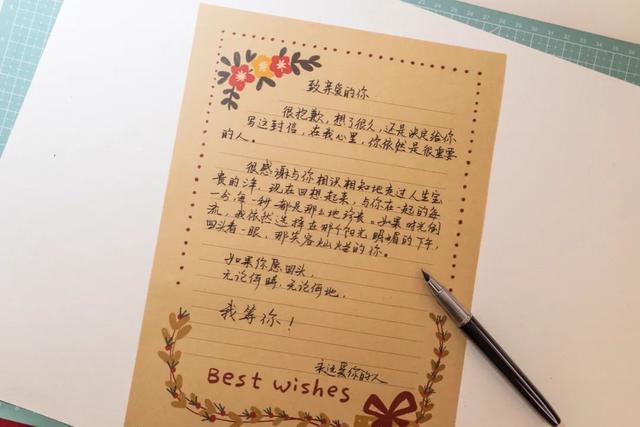 致亲爱的你
很抱歉，想了很久，还是决定给你
写这封信，在我心里，你依然是很重要
的人。
很感谢与你相识相知地走过人生宝
贵的三年。现在回想起来，与你在一起的每
一分、每一秒都是那么地珍贵。如果时光倒
流，我依然选择在那个阳光明媚的下午，
回头看一眼，那笑容灿烂的你。
如果你愿回头，
无论何时，无论何地，
我等你！
永远爱你的人
Best wishes